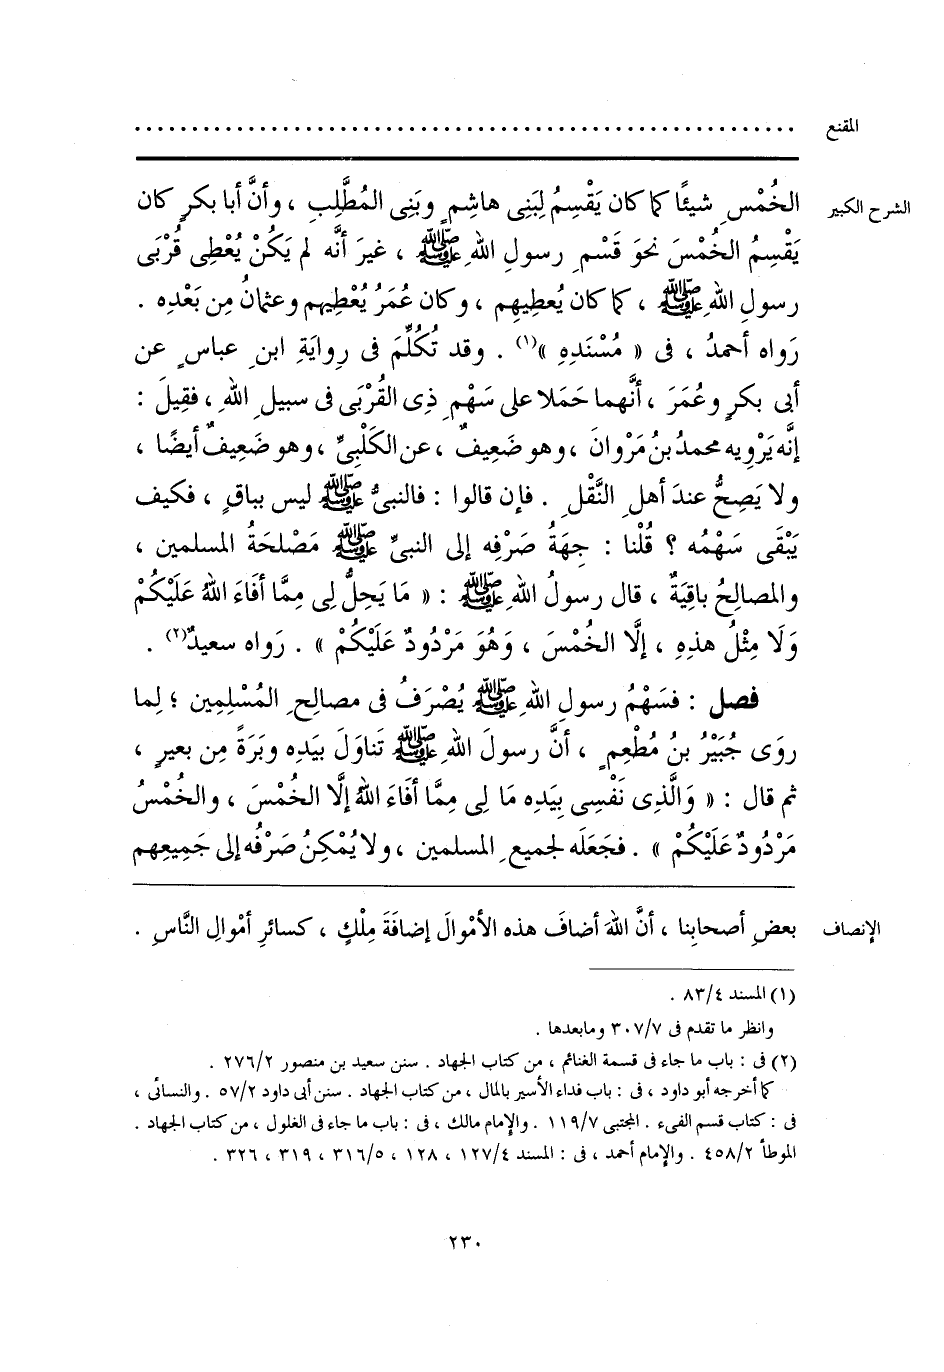 المقنع ........................................................
الشرح الكبير الخُمْسِ شيئًا كما كان يَقْسِمُ لِبَنِى هاشِمٍ وبَنِى المُطَّلِبِ ، وأنَّ أبا بكرٍ كان
يَقْسِمُ الخُمْسَ نحوَ قَسْمِ رسولِ اللهِ ﷺ ، غيرَ أنَّه لم يَكُنْ يُعْطِى قُرْبَى
رسولِ اللهِ ﷺ ، كما كان يُعطِيهِم ، وكان عُمَرُ يُعْطِيهم وعثمانُ مِن بَعْدِه .
رَواه أحمدُ ، فى « مُسْنَدِهِ »(١) . وقد تُكُلِّمَ فى رِوايَةِ ابنِ عباسٍ عن
أبى بكرٍ وعُمَرَ ، أنَّهما حَمَلا على سَهْمِ ذِى القُرْبَى فى سبيلِ اللهِ ، فقِيلَ :
إنَّه يَرْوِيه محمدُ بنُ مَرْوانَ ، وهو ضَعِيفٌ ، عن الكَلْبِىِّ ، وهو ضَعِيفٌ أيضًا ،
ولا يَصِحُّ عندَ أهلِ النَّقْلِ . فإن قالوا : فالنبىُّ ﷺ ليس بباقٍ ، فكيف
يَبْقَى سَهْمُه ؟ قُلْنا : جِهَةُ صَرْفِه إلى النبىِّ ﷺ مَصْلحَةُ المسلمين ،
والمصالِحُ باقِيَةٌ ، قال رسولُ اللهِ ﷺ : « مَا يَحِلُّ لِى مِمَّا أفَاءَ اللهُ عَلَيْكُمْ
وَلَا مِثْلُ هذِهِ ، إلَّا الخُمْسَ ، وَهُوَ مَرْدُودٌ عَلَيْكُمْ » . رَواه سعيدٌ(٢) .
فصل : فسَهْمُ رسولِ اللهِ ﷺ يُصْرَفُ فى مصالحِ المُسْلِمِين ؛ لِما
روَى جُبَيْرُ بنُ مُطْعِمٍ ، أنَّ رسولَ اللهِ ﷺ تَناوَلَ بيَدِه وبَرَةً مِن بعيرٍ ،
ثم قال : « وَالَّذِى نَفْسِى بِيَدِه مَا لِى مِمَّا أفَاءَ اللهُ إلَّا الخُمْسَ ، والخُمْسُ
مَرْدُودٌ عَلَيْكُمْ » . فجَعَلَه لجميعِ المسلمين ، ولا يُمْكِنُ صَرْفُه إلى جَمِيعِهم
الإنصاف بعضِ أصحابِنا ، أنَّ اللهَ أضافَ هذه الأمْوالَ إضافَةَ مِلْكٍ ، كسائرِ أمْوالِ النَّاسِ .
(١) المسند ٨٣/٤ .
وانظر ما تقدم فى ٣٠٧/٧ ومابعدها .
(٢) فى : باب ما جاء فى قسمة الغنائم ، من كتاب الجهاد . سنن سعيد بن منصور ٢٧٦/٢ .
كما أخرجه أبو داود ، فى : باب فداء الأسير بالمال ، من كتاب الجهاد . سنن أبى داود ٥٧/٢ . والنسائى ،
فى : كتاب قسم الفىء . المجتبى ١١٩/٧ . والإمام مالك ، فى : باب ما جاء فى الغلول ، من كتاب الجهاد .
الموطأ ٤٥٨/٢ . والإمام أحمد ، فى : المسند ١٢٧/٤ ، ١٢٨ ، ٣١٦/٥ ، ٣١٩ ، ٣٢٦ .
٢٣٠